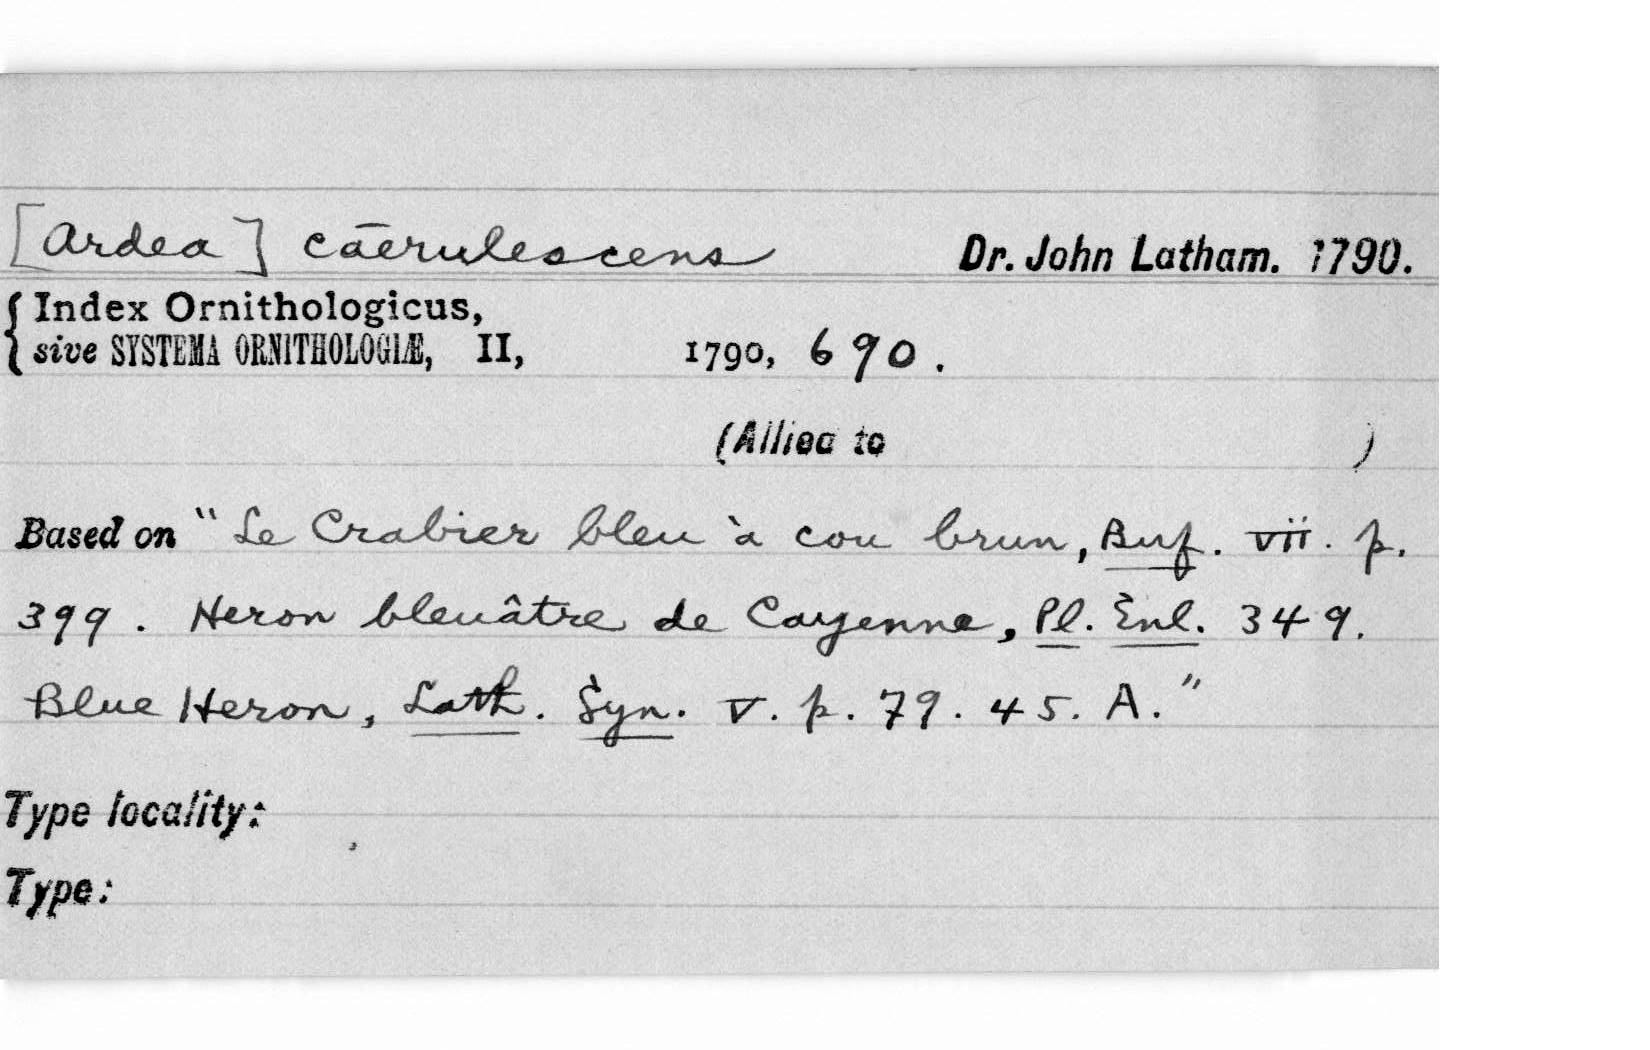 [Ardea] cāerulescens Dr. John Latham. 1790.
{ Index Ornithologicus,
sive SYSTEMA ORNITHOLOGIÆ, II, 1790, 690.
(Allied to )
Based on "Le Crabier bleu à cou brun, Buf. vii. p.
399. Heron bleuâtre de Cayenne, Pl. Enl. 349.
Blue Heron, Lath. Syn. V. p. 79. 45. A."
Type locality:
Type: